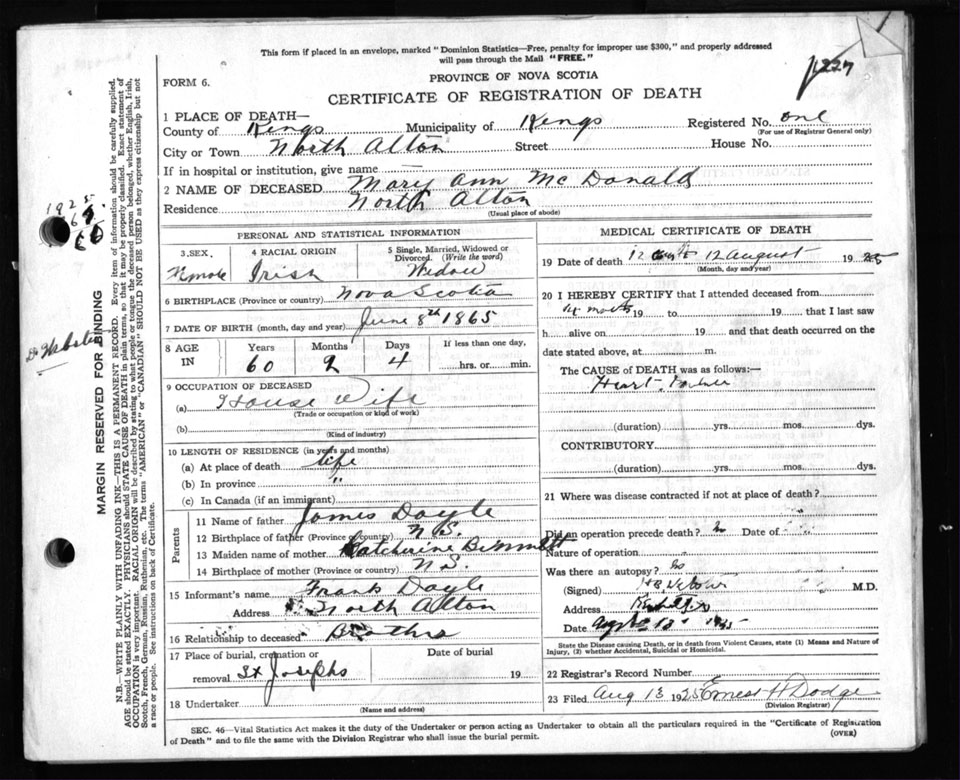 This form if placed in an envelope, marked "Dominion Statistics—Free, penalty for improper use $300," and properly addressed
will pass through the Mail "FREE."
1227
FORM 6.
PROVINCE OF NOVA SCOTIA
CERTIFICATE OF REGISTRATION OF DEATH
1 PLACE OF DEATH—
County of Kings Municipality of Kings Registered No. one
(For use of Registrar General only)
City or Town North Alton Street House No.
If in hospital or institution, give name
2 NAME OF DECEASED Mary Ann McDonald
Residence North Alton
(Usual place of abode)
MARGIN RESERVED FOR BINDING
N.B.—WRITE PLAINLY WITH UNFADING INK—THIS IS A PERMANENT RECORD. Every item of information should be carefully supplied.
AGE should be stated EXACTLY. PHYSICIANS should STATE CAUSE OF DEATH in plain terms, so that it may be properly classified. Exact statement of
OCCUPATION is very important. RACIAL ORIGIN will be described by stating to what people or tongue the deceased person belonged, whether English, Irish,
Scotch, French, German, Russian, Ruthenian, etc. The terms "AMERICAN" or "CANADIAN" SHOULD NOT BE USED as they express citizenship but not
a race or people. See instructions on back of Certificate.
1925
Dr Webster
PERSONAL AND STATISTICAL INFORMATION
3 SEX. 4 RACIAL ORIGIN 5 Single, Married, Widowed or
Divorced. (Write the word)
Female Irish Widow
6 BIRTHPLACE (Province or country) Nova Scotia
7 DATE OF BIRTH (month, day and year) June 8th 1865
8 AGE IN Years Months Days If less than one day,
60 2 4 hrs. or min.
9 OCCUPATION OF DECEASED
(a) House Wife
(Trade or occupation or kind of work)
(b)
(Kind of industry)
10 LENGTH OF RESIDENCE (in years and months)
(a) At place of death life
(b) In province "
(c) In Canada (if an immigrant)
Parents
11 Name of father James Doyle
12 Birthplace of father (Province or country) N.S.
13 Maiden name of mother Katcherine
14 Birthplace of mother (Province or country) N.S.
15 Informant's name Frank Doyle
Address North Alton
16 Relationship to deceased Brother
17 Place of burial, cremation or Date of burial
removal St Josephs 19
18 Undertaker
(Name and address)
MEDICAL CERTIFICATE OF DEATH
19 Date of death 12 August 1925
(Month, day and year)
20 I HEREBY CERTIFY that I attended deceased from
19 to 19 that I last saw
h alive on 19 and that death occurred on
date stated above, at m.
The CAUSE of DEATH was as follows:—
Heart
(duration) yrs. mos. dys.
CONTRIBUTORY
(duration) yrs. mos. dys.
21 Where was disease contracted if not at place of death?
Did an operation precede death? Date of
Nature of operation
Was there an autopsy? no
(Signed) M.D.
Address
Date
State the Disease causing Death, or in death from Violent Causes, state (1) Means and Nature of
Injury, (2) whether Accidental, Suicidal or Homicidal.
22 Registrar's Record Number
23 Filed Aug 13 1925 Ernest H Dodge
(Division Registrar)
SEC. 46—Vital Statistics Act makes it the duty of the Undertaker or person acting as Undertaker to obtain all the particulars required in the "Certificate of Registration
of Death" and to file the same with the Division Registrar who shall issue the burial permit.
(OVER)